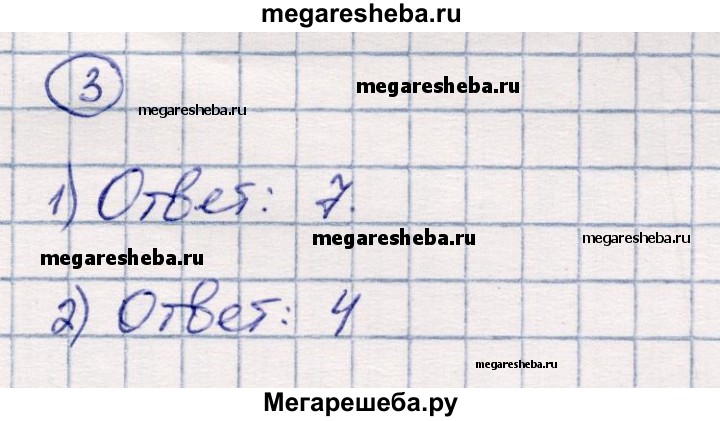 megaresheba.ru
3
megaresheba.ru
megaresheba.ru
1) Ответ: 7.
megaresheba.ru
megaresheba.ru
megaresheba.ru
2) Ответ: 4
megaresheba.ru
Мегарешеба.ру